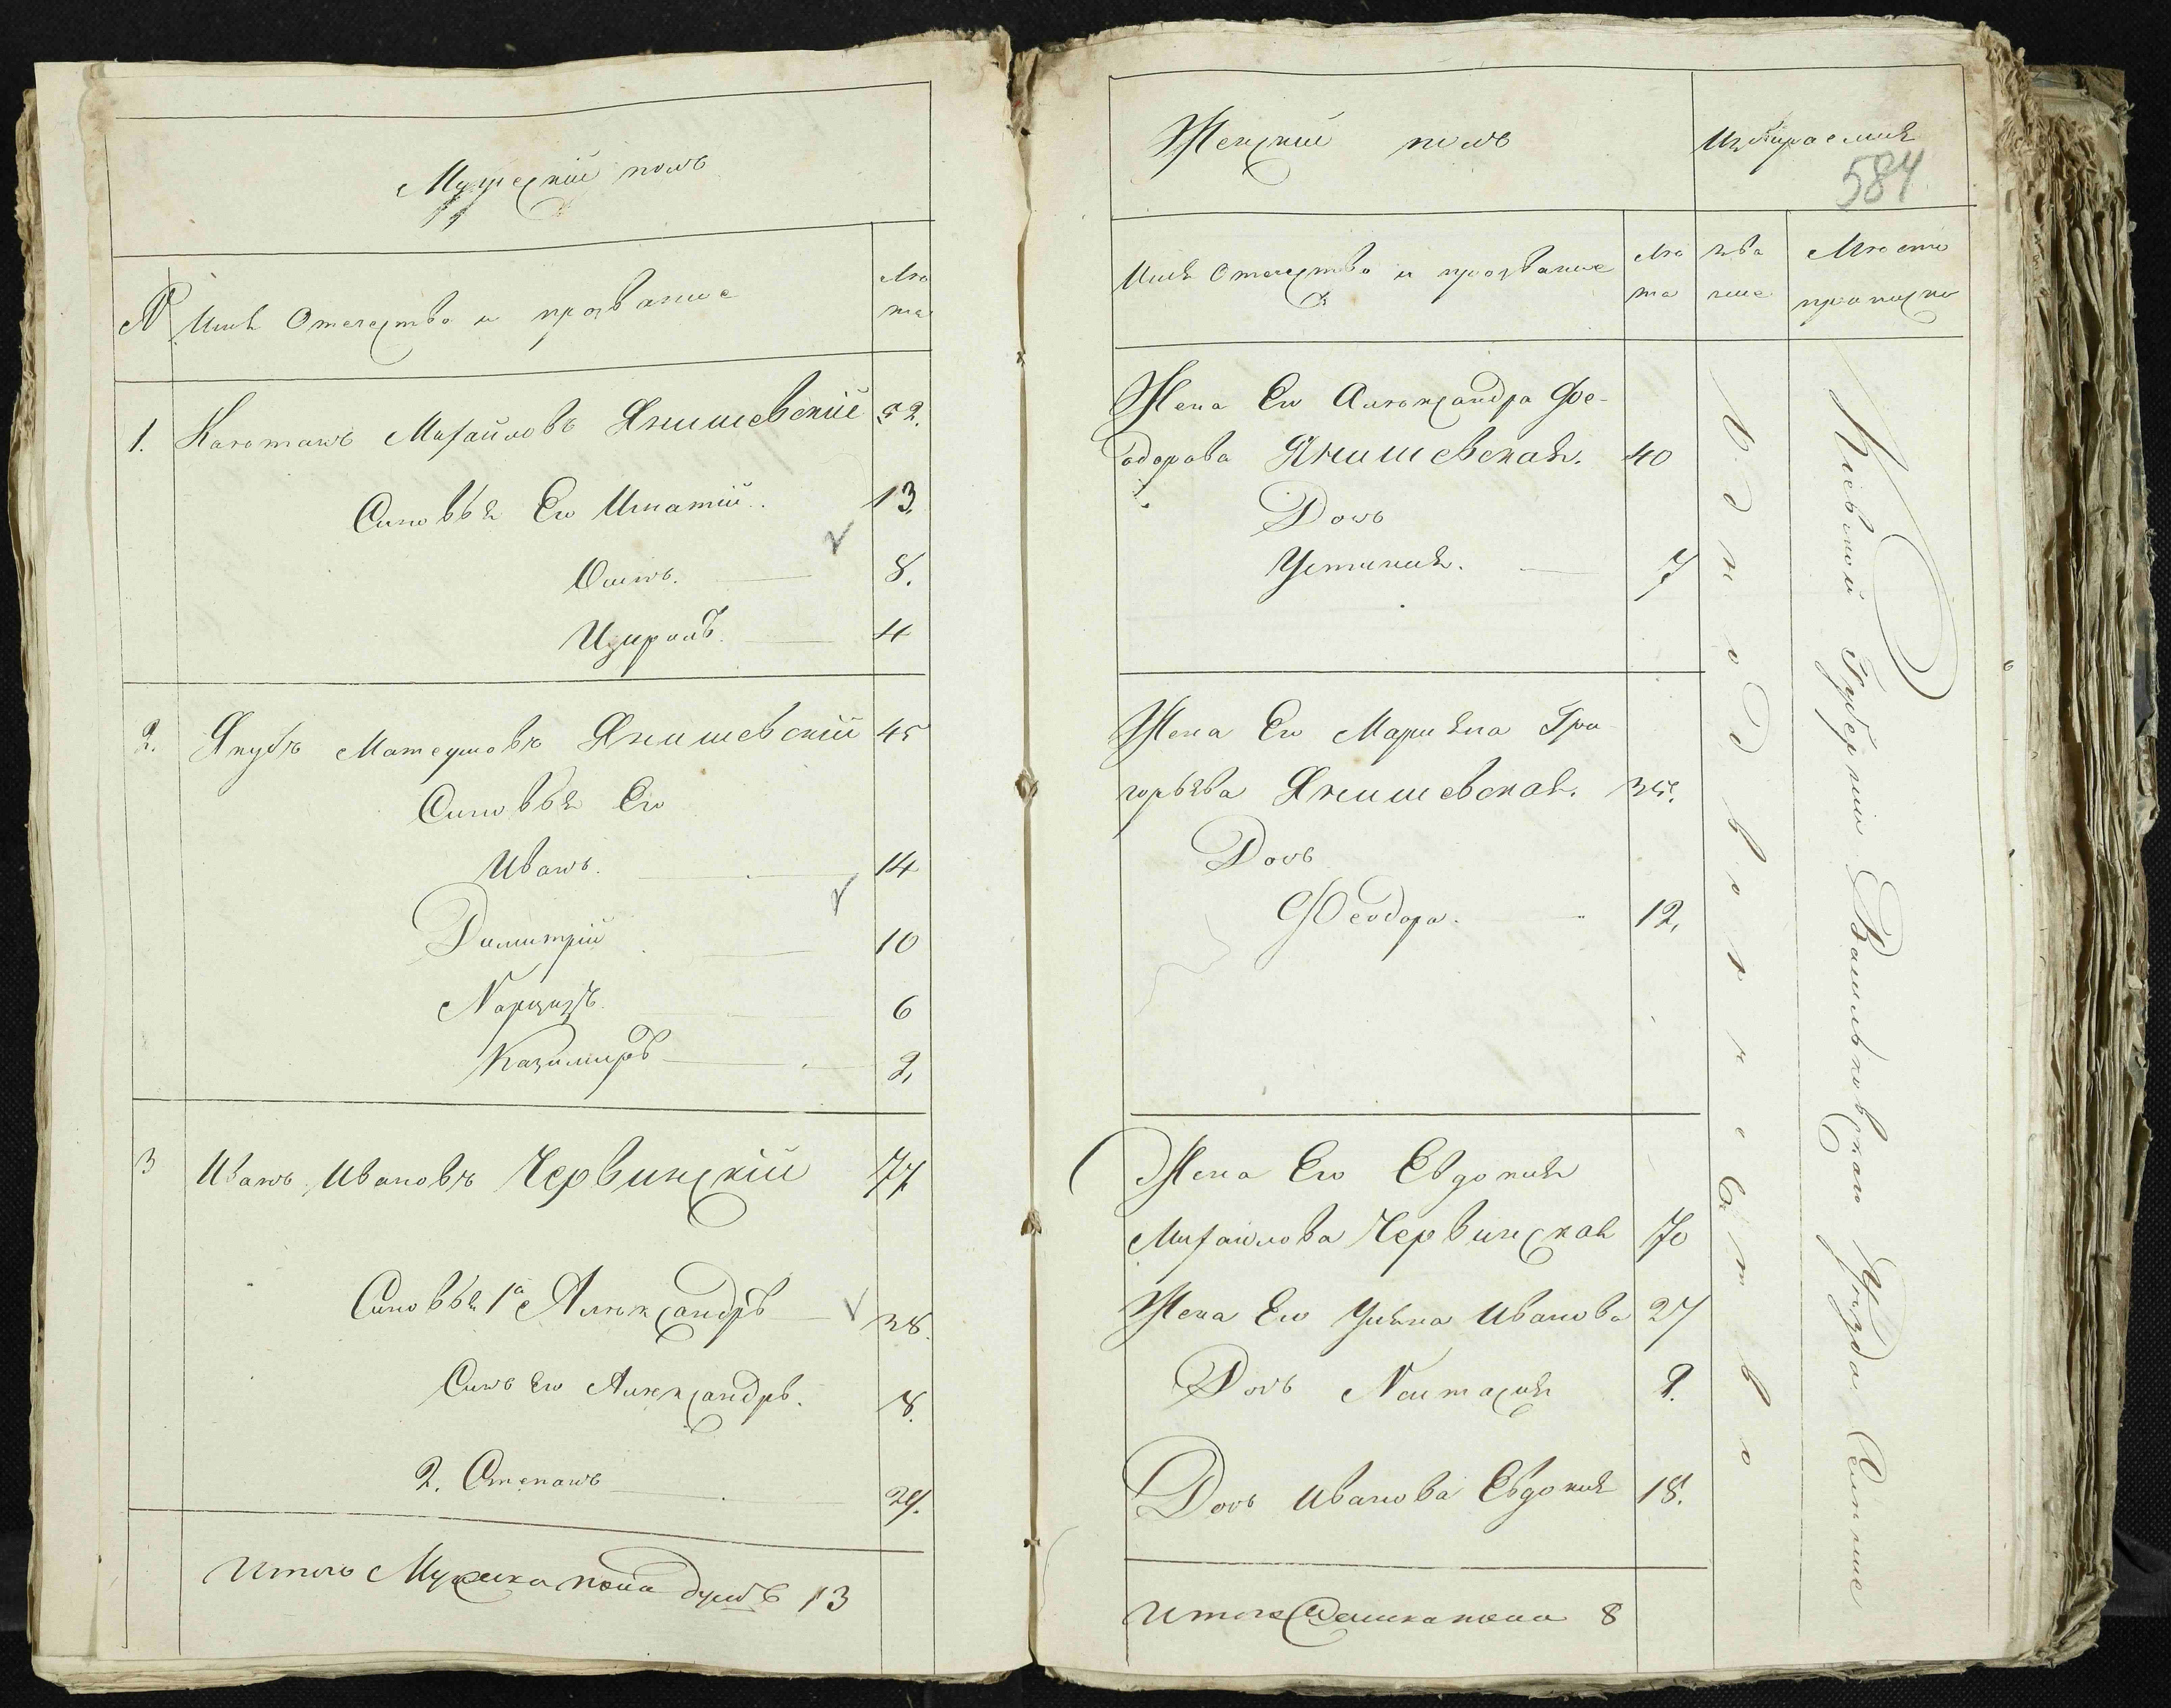 Мужескій полъ
№ Имя Отечество и прозваніе
Лѣ
та
1. Каэтанъ Михайловъ Янишевскій 52.
Сыновья Его Игнатій. 13.
Осипъ. 8.
4
2. Якубъ Матеушовъ Янишевскій 45
Сыновья Его
Иванъ. 14
Димитрій 10
Нарцизъ. 6
Казимиръ 2,
3 Иванъ Ивановъ Червинскій 77
Сыновья 1й Александръ 38.
Сынъ Его Александръ. 8.
2. Степанъ 29.
Итого Мужска пола душъ 13
Женскій полъ
Избираемия
584
Имя Отечество и прозваніе
Лѣ
та
зва
ніе
Мѣсто
прописки
Жена Его Александра Фе-
одорова Янишевская. 40
Дочь
Устинія. 7
Жена Его Марияна Гри
горьева Янишевская. 35.
Дочь
Феодора. 12,
Жена Его Евдокия
Михайлова Червинская 70
Жена Его Улияна Иванова 27
Дочь Настасия 2.
Дочь Иванова Евдокия 18.
Итого Женска пола 8
Однодворчество
Кіевской Губерніи Васильковскаго Уѣзда